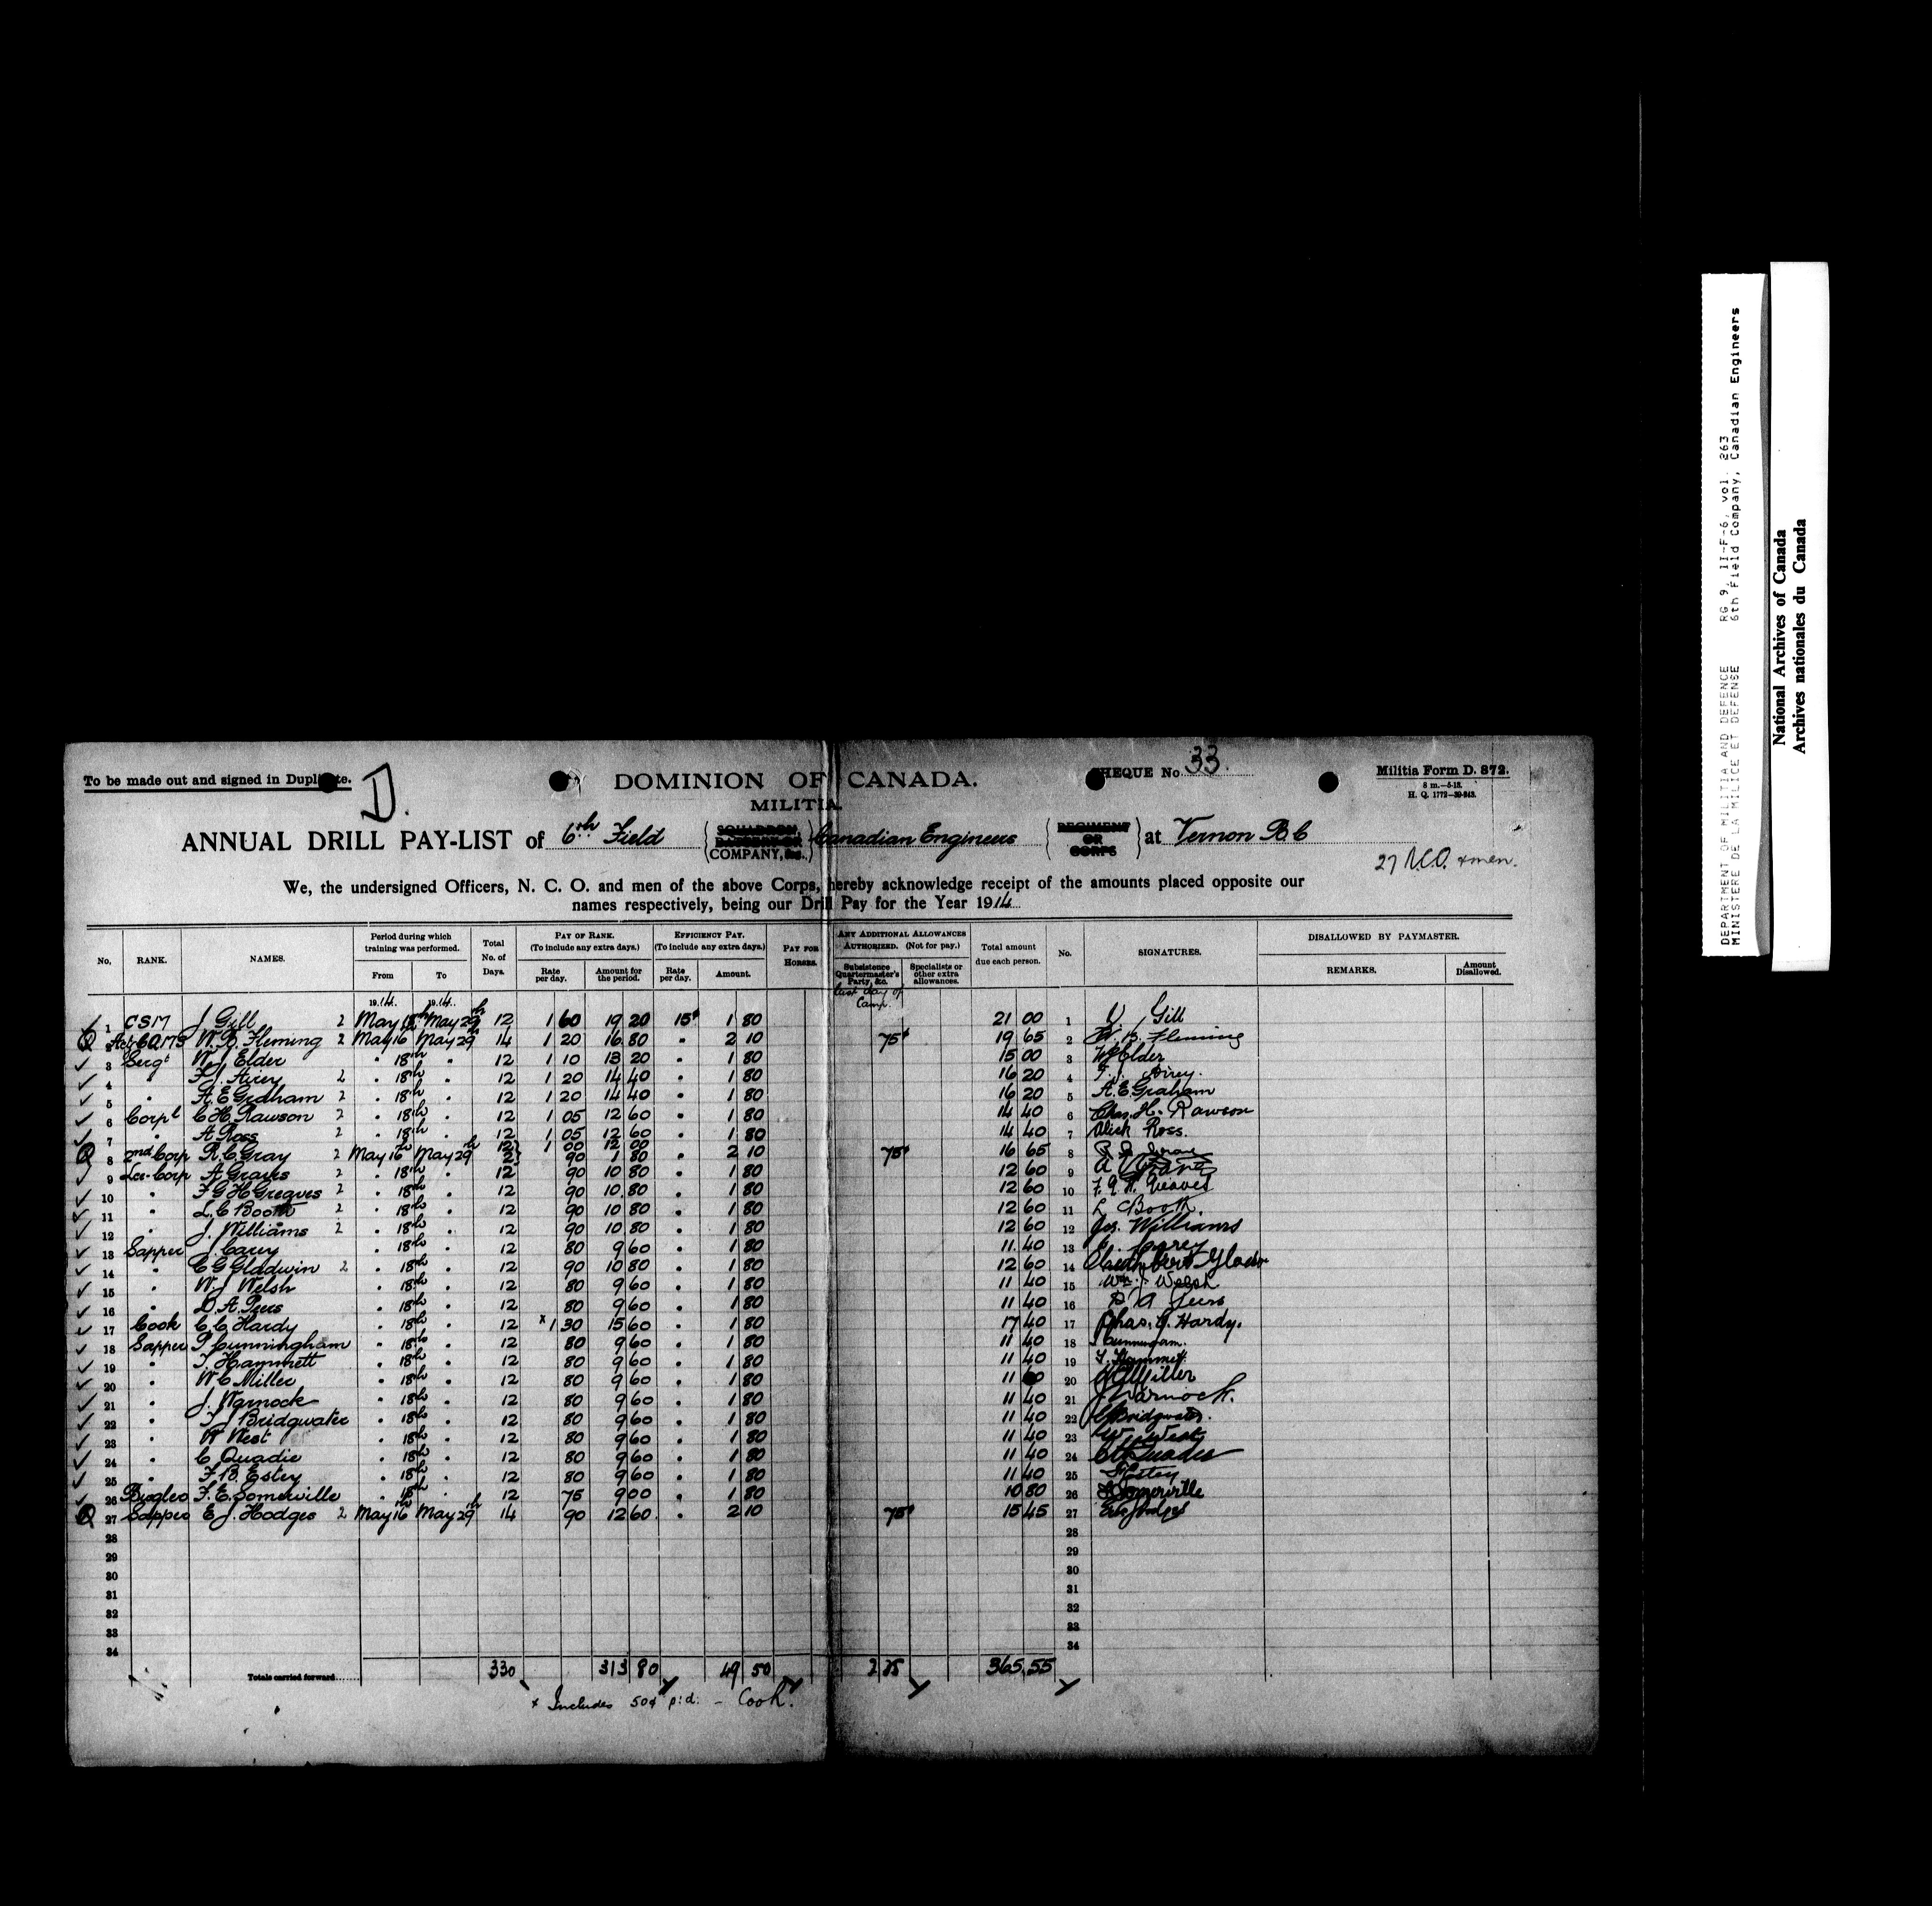 To be made out and signed in Duplicate.
D.
DOMINION OF CANADA.
MILITIA
CHEQUE No 33.
Militia Form D. 872.
8 m.—5-13.
H. Q. 1772-39-243.
ANNUAL DRILL PAY-LIST of 6th Field COMPANY, Canadian Engineers REGIMENT OR CORPS at Vernon B C
27 N.C.O. & men.
We, the undersigned Officers, N. C. O. and men of the above Corps, hereby acknowledge receipt of the amounts placed opposite our
names respectively, being our Drill Pay for the Year 1914
No. RANK. NAMES. Period during which training was performed. From To Total No. of Days. PAY OF RANK. (To include any extra days.) Rate per day. Amount for the period. EFFICIENCY PAY. (To include any extra days.) Rate per day. Amount. PAY FOR HORSES. ANY ADDITIONAL ALLOWANCES AUTHORIZED. (Not for pay.) Subsistence Quartermaster's Party, &c. Specialists or other extra allowances. Total amount due each person. No. SIGNATURES. DISALLOWED BY PAYMASTER. REMARKS. Amount Disallowed.
last day of Camp.
1914. 1914.
1 CSM J Gill 2 May 18th May 29th 12 1 60 19 20 15¢ 1 80 21 00 1 J Gill
2 W. B. Fleming 2 May 16 May 29th 14 1 20 16 80 " 2 10 75¢ 19 65 2 W. B. Fleming
3 Sergt W. J Elder " 18th " 12 1 10 13 20 " 1 80 15 00 3 W J Elder
4 " F. J. Airey 2 " 18th " 12 1 20 14 40 " 1 80 16 20 4 F. J. Airey.
5 " A. E Graham 2 " 18th " 12 1 20 14 40 " 1 80 16 20 5 A. E Graham
6 Corpl C H. Rawson 2 " 18th " 12 1 05 12 60 " 1 80 14 40 6 Chas. H. Rawson
7 " A Ross 2 " 18th " 12 1 05 12 60 " 1 80 14 40 7 Alick Ross.
8 2nd Corp R. C. Gray 2 May 16th May 29th 12 2} 1 00 90 12 00 1 80 " 2 10 75¢ 16 65 8
9 Lce-Corp A Graves 2 " 18th " 12 90 10 80 " 1 80 12 60 9
10 " F G H Greaves 2 " 18th " 12 90 10 80 " 1 80 12 60 10 F. G. H. Greaves
11 " L. C Booth 2 " 18th " 12 90 10 80 " 1 80 12 60 11 L C Booth.
12 " J. Williams 2 " 18th " 12 90 10 80 " 1 80 12 60 12 Jas. Williams
13 Sapper J. Carey " 18th " 12 80 9 60 " 1 80 11 40 13 Carey
14 " C G Gladwin 2 " 18th " 12 90 10 80 " 1 80 12 60 14
15 " W. J Welsh " 18th " 12 80 9 60 " 1 80 11 40 15 Wm. J. Welsh
16 " D. A. Peers " 18th " 12 80 9 60 " 1 80 11 40 16 D A Peers
17 Cook C. C. Hardy " 18th " 12 x 1 30 15 60 " 1 80 17 40 17 Chas. C. Hardy.
18 Sapper P Cunningham " 18th " 12 80 9 60 " 1 80 11 40 18 Cunningham.
19 " T. Hammett " 18th " 12 80 9 60 " 1 80 11 40 19 T. Hammett
20 " W C Miller " 18th " 12 80 9 60 " 1 80 11 20 W C Miller
21 " J. Warnock " 18th " 12 80 9 60 " 1 80 11 40 21 J Warnock.
22 " T J Bridgwater " 18th " 12 80 9 60 " 1 80 11 40 22 Bridgwater.
23 " W West " 18th " 12 80 9 60 " 1 80 11 40 23 W. West
24 " C. Quadie " 18th " 12 80 9 60 " 1 80 11 40 24 Quadie
25 " F. B. Estey " 18th " 12 80 9 60 " 1 80 11 40 25 Estey
26 Bugler F. E. Somerville " 18th " 12 75 9 00 " 1 80 10 80 26 Somerville
27 Sapper E. J. Hodges 2 May 16th May 29th 14 90 12 60 " 2 10 75¢ 15 45 27
28 28
29 29
30 30
31 31
32 32
33 33
34 34
Totals carried forward 330 313 80 49 50 2 25 365,55
x Includes 50¢ p.d. - Cook.
DEPARTMENT OF MILITIA AND DEFENCE RG 9, II-F-6, vol. 263
MINISTERE DE LA MILICE ET DEFENSE 6th Field Company, Canadian Engineers
National Archives of Canada
Archives nationales du Canada